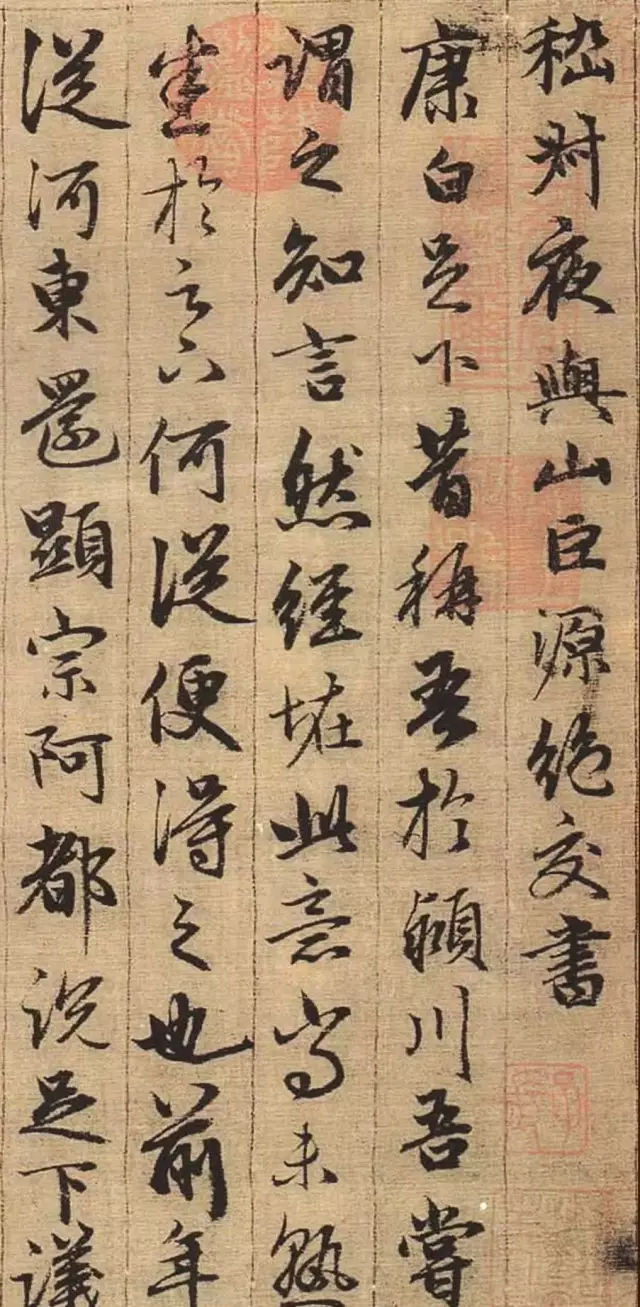 嵇叔夜與山巨源絶交書
康白足下昔稱吾於潁川吾嘗
謂之知言然經恠此意尚未熟
悉於足下何從便得之也前年
從河東還顯宗阿都説足下議